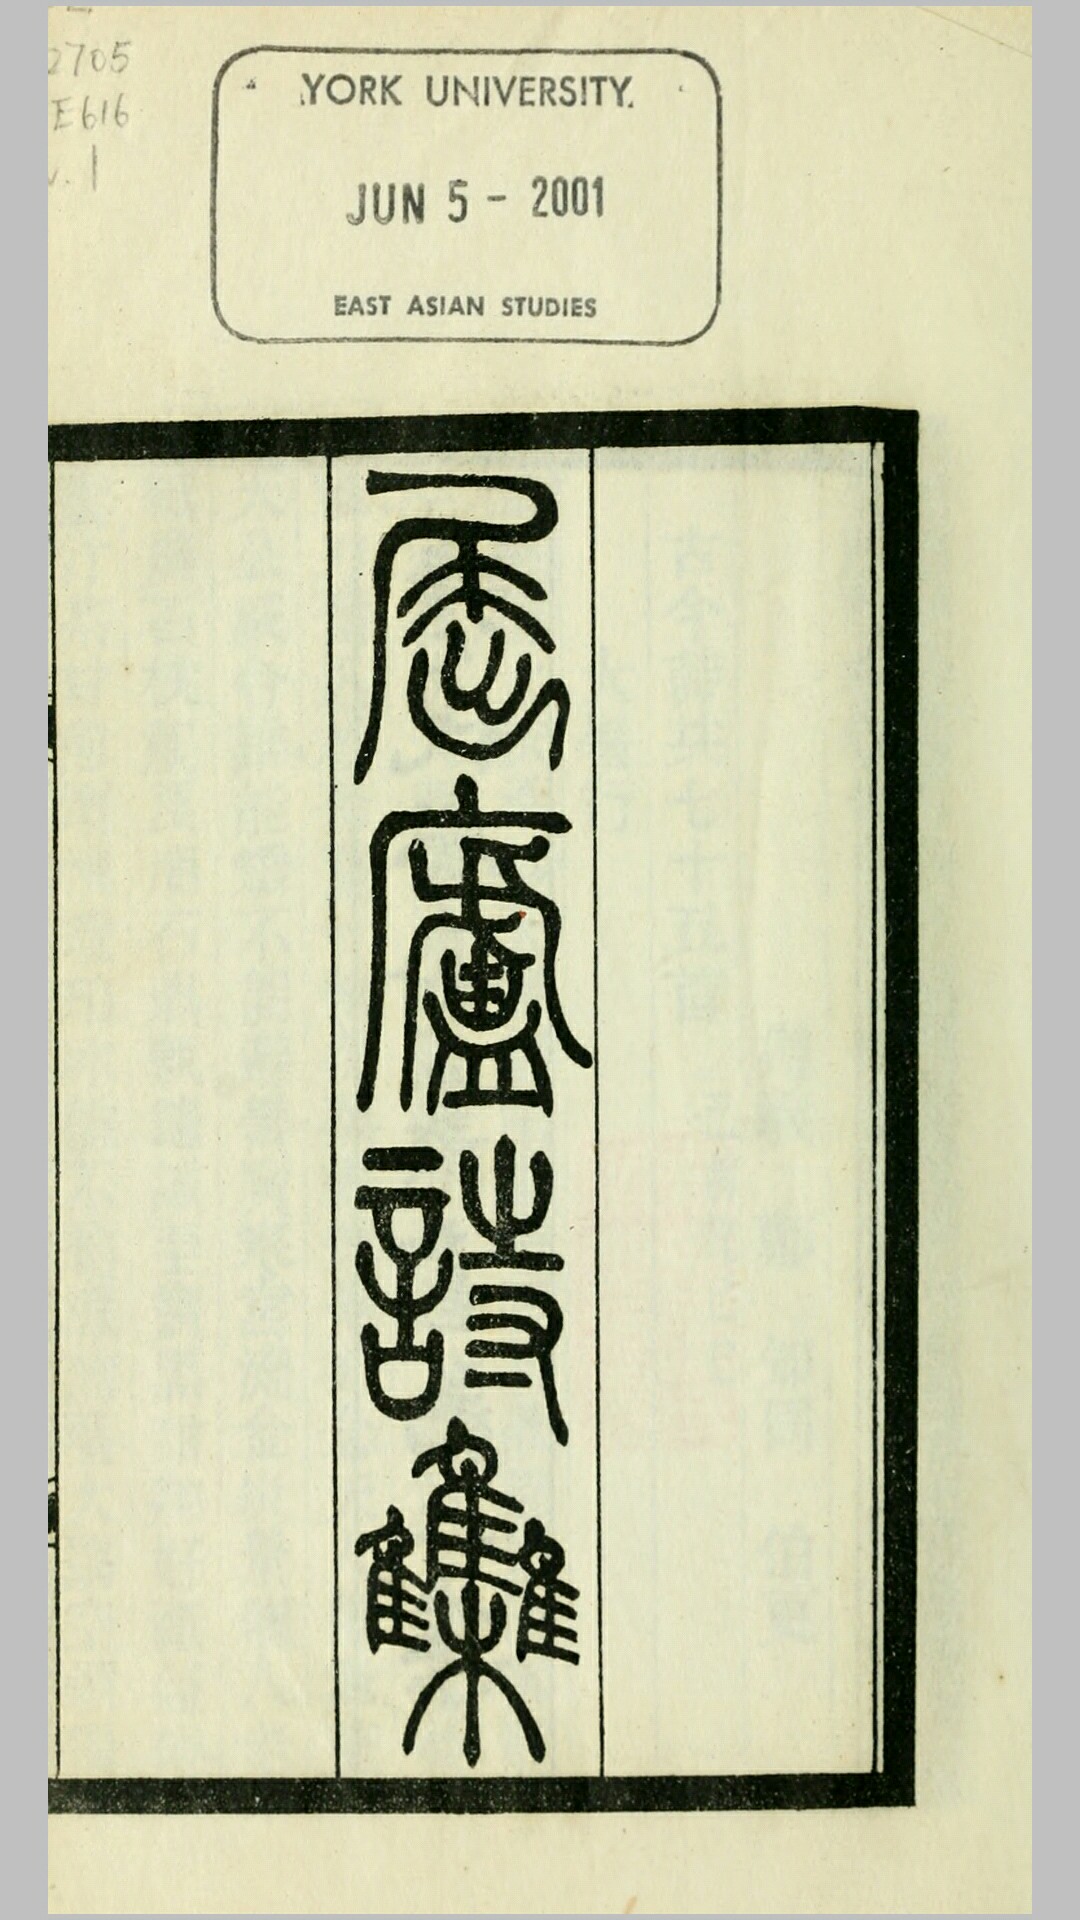 2705
E616
v. 1
YORK UNIVERSITY
JUN 5 - 2001
EAST ASIAN STUDIES
廬詩集